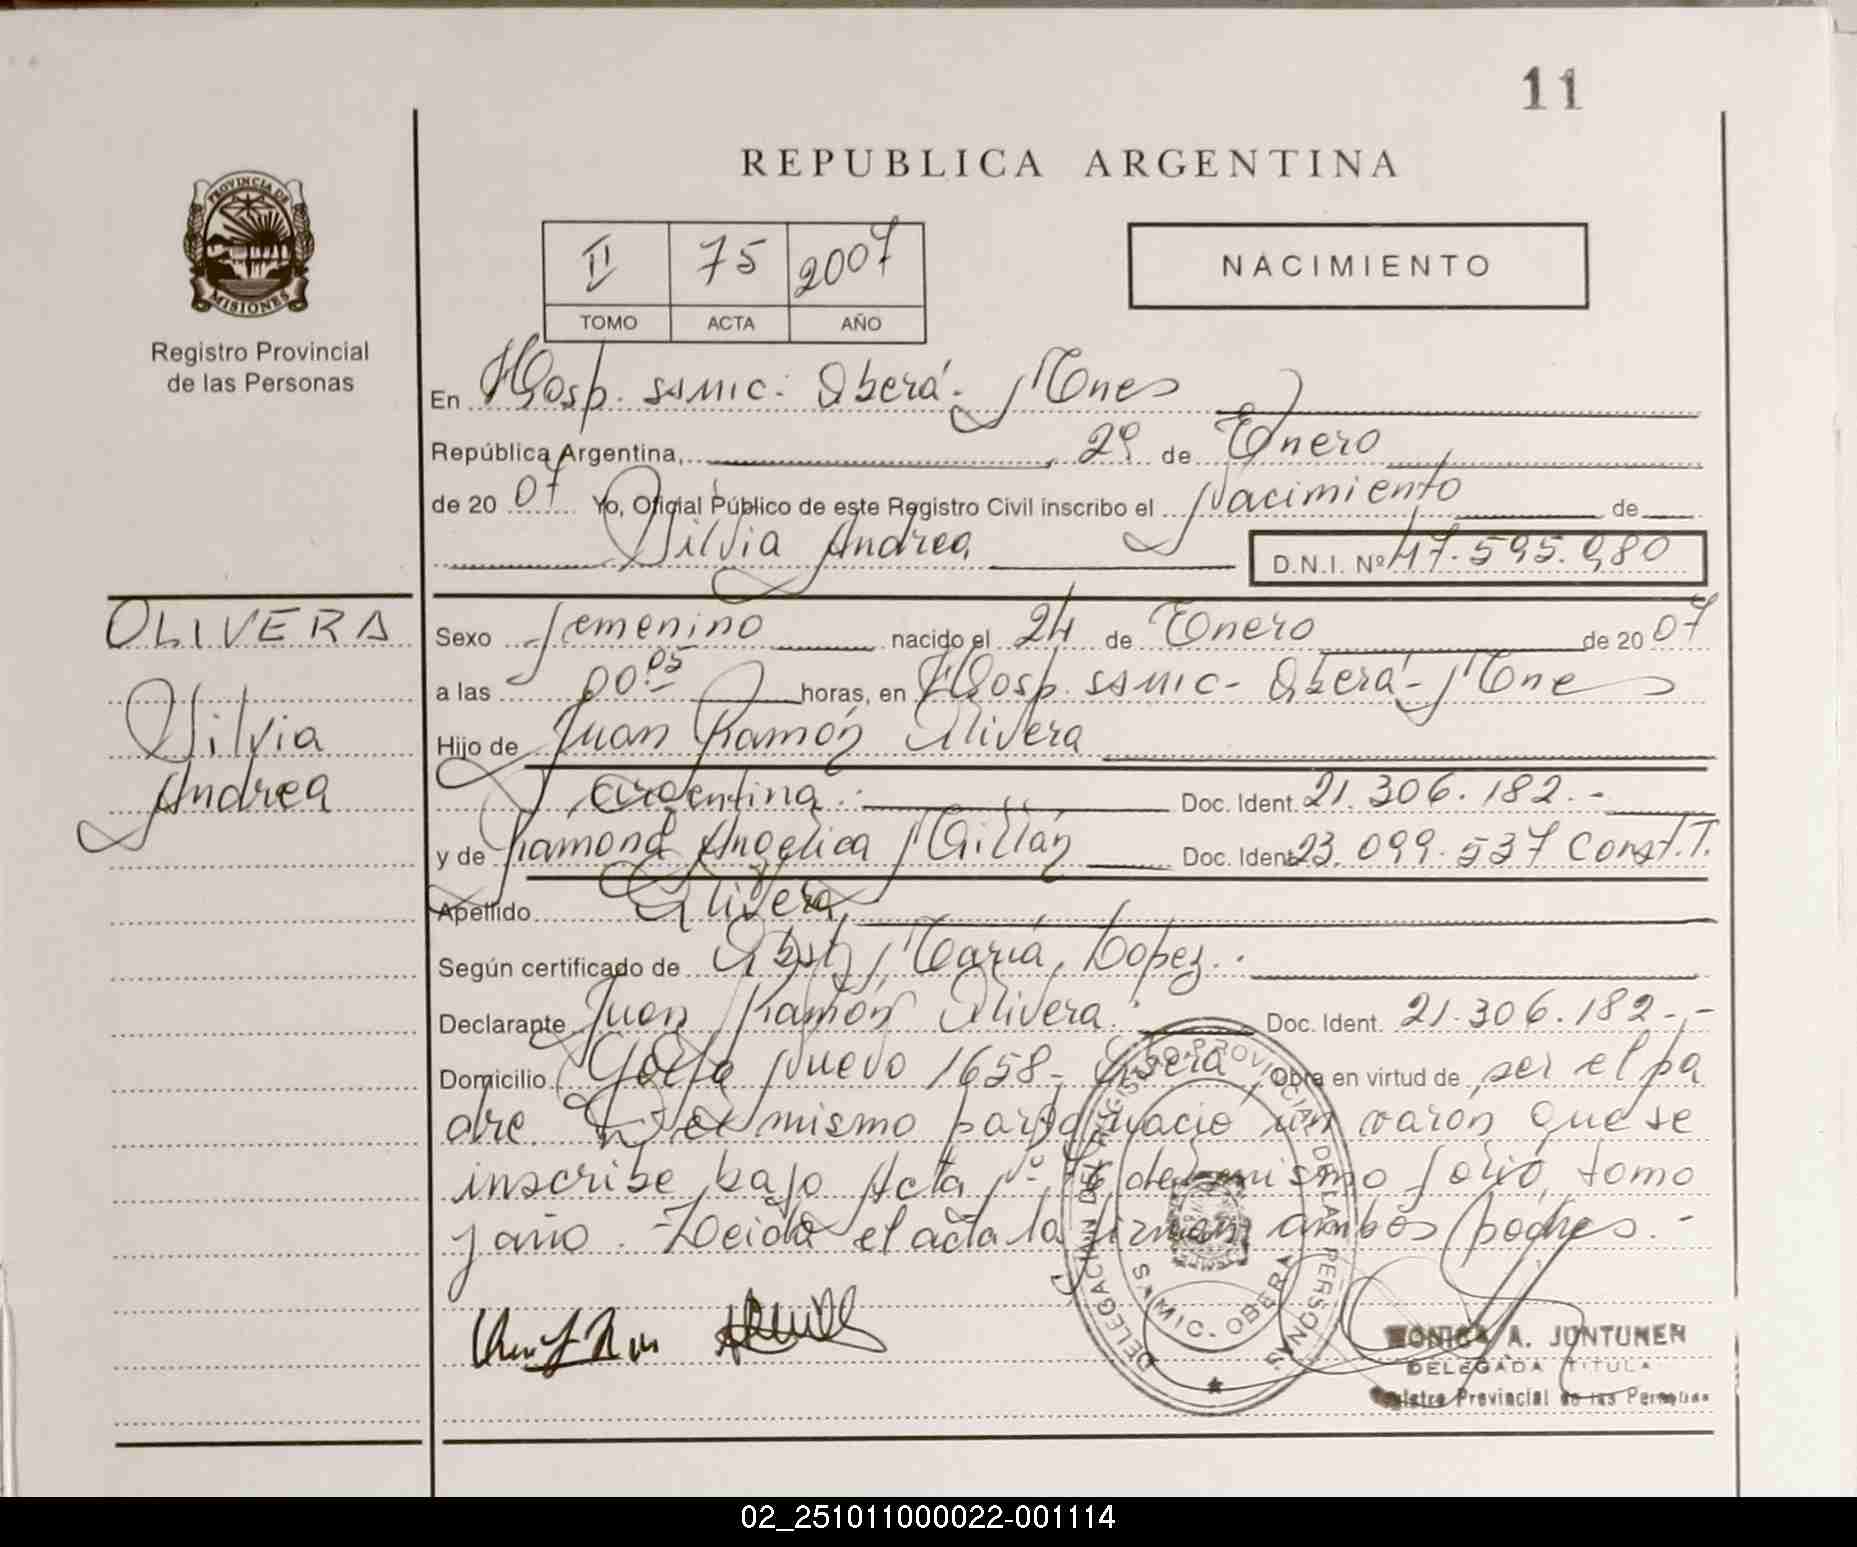 11
REPUBLICA ARGENTINA
PROVINCIA DE
MISIONES
Registro Provincial
de las Personas
II 75 2007
TOMO ACTA AÑO
NACIMIENTO
En Hosp. SAMIC. Oberá - Mnes
República Argentina, 29 de Enero
de 20 07 Yo, Oficial Público de este Registro Civil inscribo el Nacimiento de
Silvia Andrea D.N.I. Nº 47.595.980
OLIVERA
Silvia
Andrea
Sexo femenino nacido el 24 de Enero de 20 07
a las 00:05 horas, en Hosp. SAMIC - Oberá - Mnes
Hijo de Juan Ramón Olivera
argentina. Doc. Ident. 21.306.182.-
y de Ramona Angelica Millán Doc. Ident. 23.099.537 Const.T.
Apellido Olivera
Según certificado de Obst. María Lopez.
Declarante Juan Ramón Olivera Doc. Ident. 21.306.182.-
Domicilio Golfo Nuevo 1658 - Oberá Obra en virtud de ser el pa
dre. Del mismo parto nació un varón que se
inscribe bajo Acta Nº 76 del mismo folio, tomo
y año. Leida el acta la firman ambos padres.-
DELEGACION DEL REGISTRO PROVINCIAL DE LAS PERSONAS
SAMIC - OBERA
MONICA A. JUNTUNEN
DELEGADA TITULA
Registro Provincial de las Personas
02_251011000022-001114